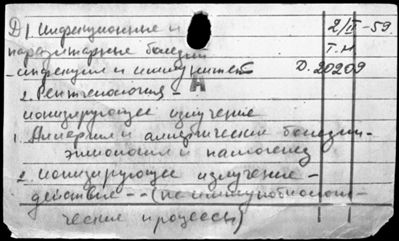 Д 1. Инфекционные и 2/IV-59.
паразитарные болезни Т.М
-инфекции и иммунитет Д. 20209
А
2. Рентгенология
ионизирующее излучение
1. Аллергия и аллергические болезни-
этиология и патогенез
2. ионизирующее излучение -
действие - - (не иммунобиологи-
ческие процессы)